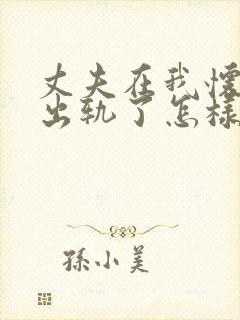 丈夫在我懷
出轨了怎样
孫小美